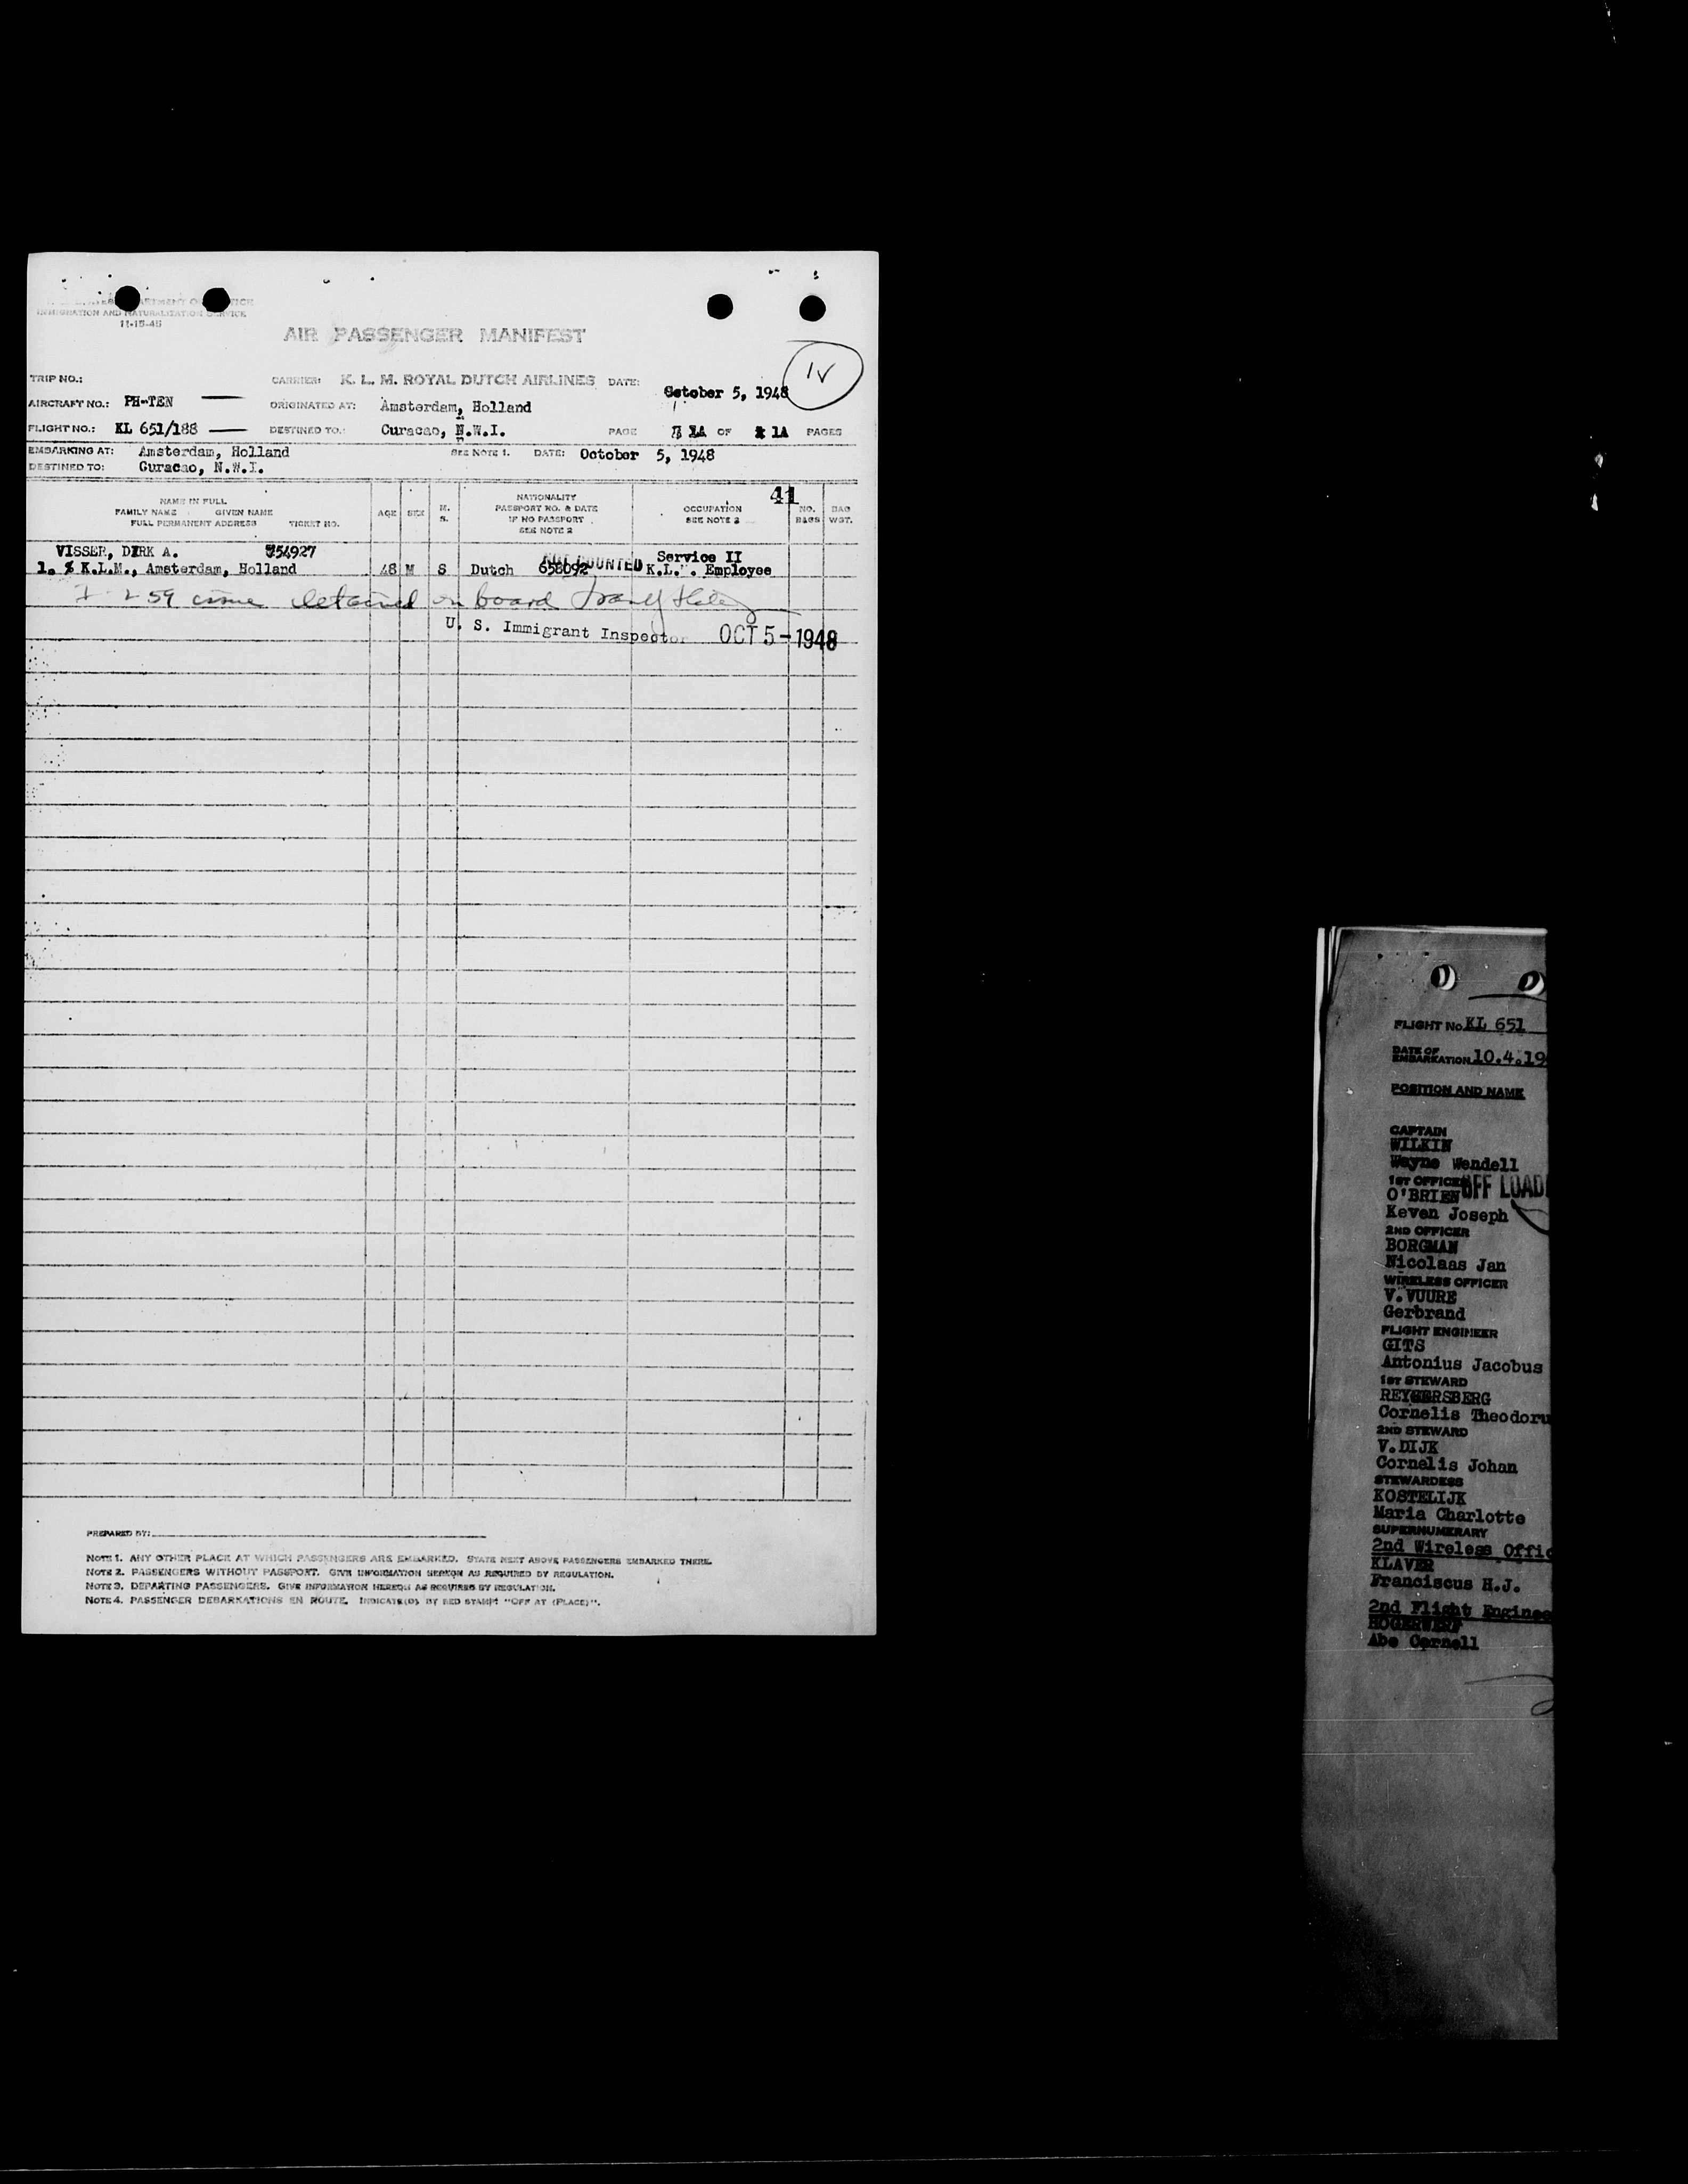 IMMIGRATION AND NATURALIZATION SERVICE
11-15-45
AIR PASSENGER MANIFEST
IV
TRIP NO.: CARRIER: K. L. M. ROYAL DUTCH AIRLINES DATE: October 5, 1948
AIRCRAFT NO.: PH-TEN ORIGINATED AT: Amsterdam, Holland
FLIGHT NO.: KL 651/188 DESTINED TO: Curacao, N.W.I. PAGE 1A OF 1A PAGES
EMBARKING AT: Amsterdam, Holland SEE NOTE 1. DATE: October 5, 1948
DESTINED TO: Curacao, N.W.I.
41
NAME IN FULL
FAMILY NAME GIVEN NAME
FULL PERMANENT ADDRESS TICKET NO.
AGE SEX M. S.
NATIONALITY
PASSPORT NO. & DATE
IF NO PASSPORT
SEE NOTE 2
OCCUPATION
SEE NOTE 3
NO. BAGS
BAG WGT.
VISSER, DIRK A. 754927 Service II
1. % K.L.M., Amsterdam, Holland 48 M S Dutch 658092 NOT COUNTED K.L.M. Employee
I 259 detained on board
U. S. Immigrant Inspector OCT 5-1948
PREPARED BY:
NOTE 1. ANY OTHER PLACE AT WHICH PASSENGERS ARE EMBARKED. STATE NEXT ABOVE PASSENGERS EMBARKED THERE.
NOTE 2. PASSENGERS WITHOUT PASSPORT. GIVE INFORMATION HEREON AS REQUIRED BY REGULATION.
NOTE 3. DEPARTING PASSENGERS. GIVE INFORMATION HEREON AS REQUIRED BY REGULATION.
NOTE 4. PASSENGER DEBARKATIONS EN ROUTE. INDICATE(D) BY RED STAMP "OFF AT (PLACE)".
FLIGHT No. KL 651
DATE OF EMBARKATION 10.4.19
POSITION AND NAME
CAPTAIN
WILKIN
Wayne Wendell
1ST OFFICER
O'BRIEN OFF LOAD
Keven Joseph
2ND OFFICER
BORGMAN
Nicolaas Jan
WIRELESS OFFICER
V.VUURE
Gerbrand
FLIGHT ENGINEER
GITS
Antonius Jacobus
1ST STEWARD
REYGERSBERG
Cornelis Theodoru
2ND STEWARD
V.DIJK
Cornelis Johan
STEWARDESS
KOSTELIJK
Maria Charlotte
SUPERNUMERARY
2nd Wireless Offic
KLAVER
Franciscus H.J.
2nd Flight Enginee
HOGERWERF
Abe Cornell